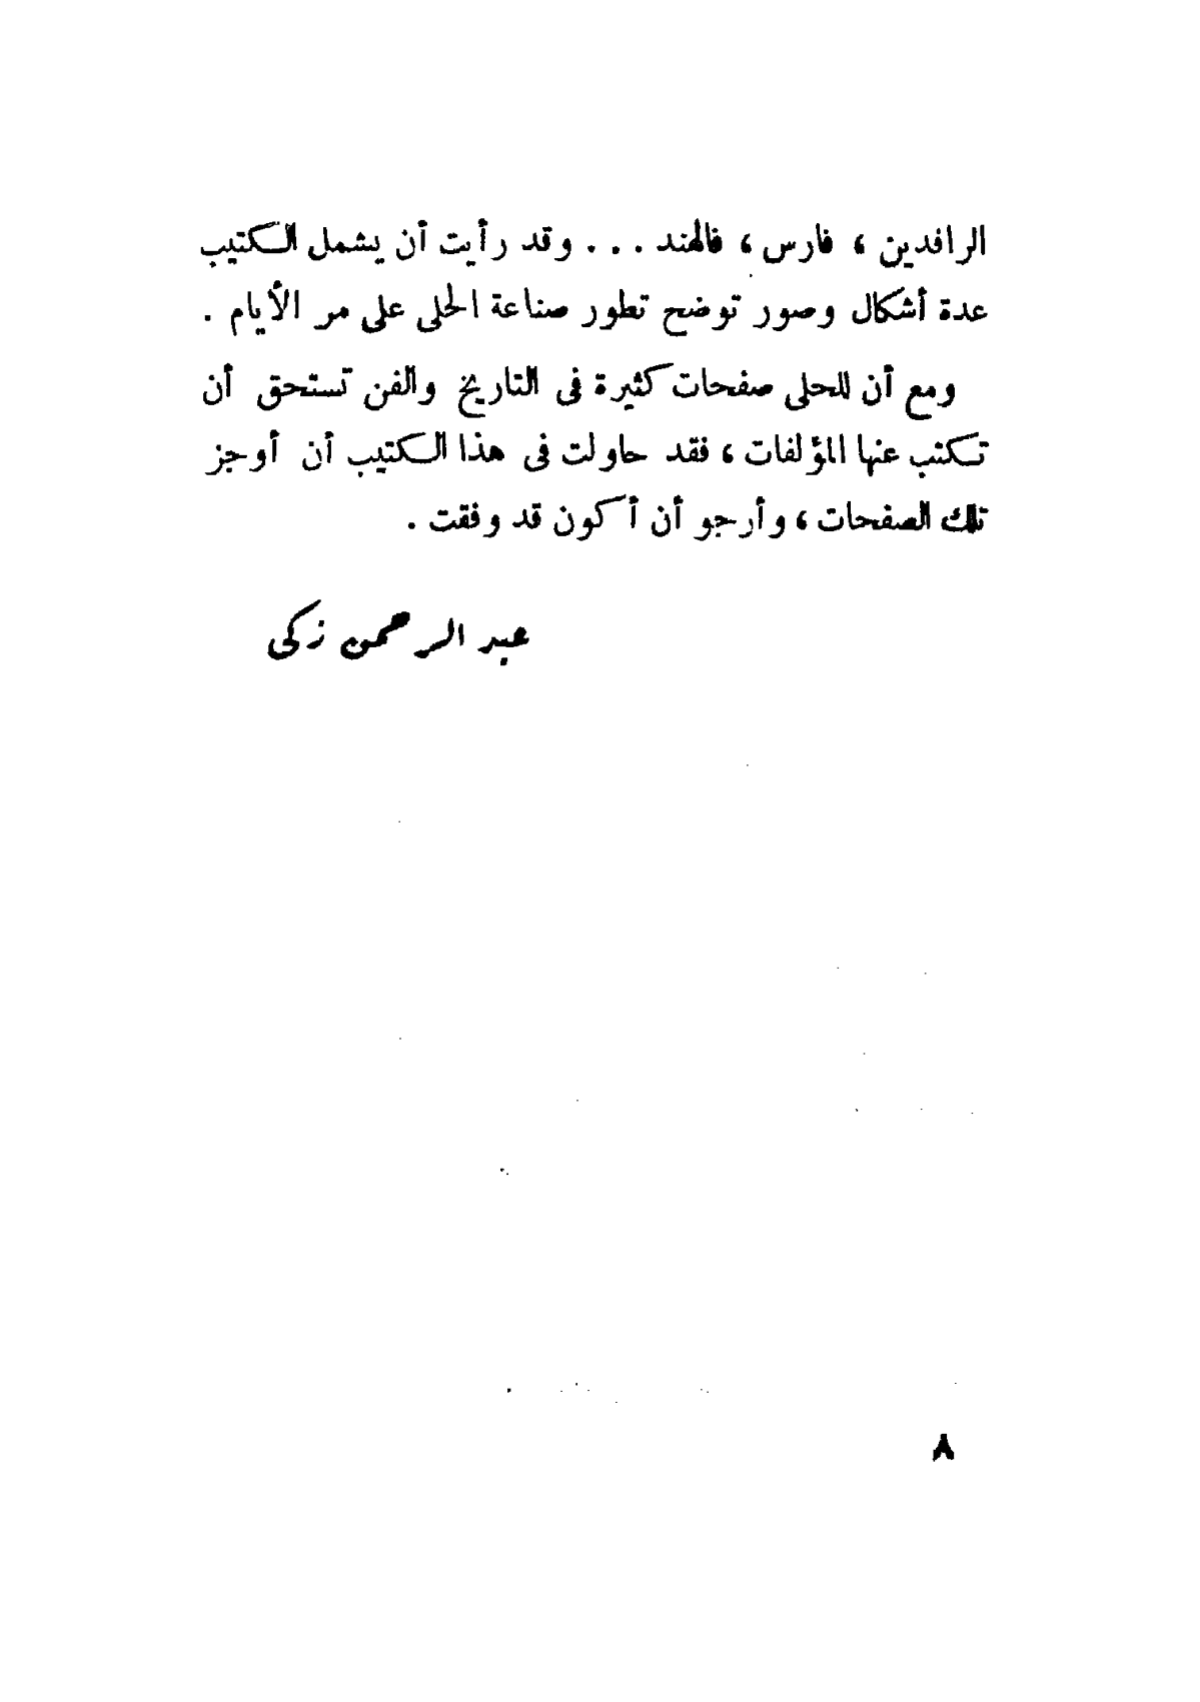 الرافدين ، فارس ، فالهند . . . وقد رأيت أن يشمل الكتيب
عدة أشكال وصور توضح تطور صناعة الحلى على مر الأيام .
ومع أن للحلى صفحات كثيرة فى التاريخ والفن تستحق أن
تكتب عنها المؤلفات ، فقد حاولت فى هذا الكتيب أن أوجز
تلك الصفحات ، وأرجو أن أكون قد وفقت .
عبد الرحمن زكى
٨